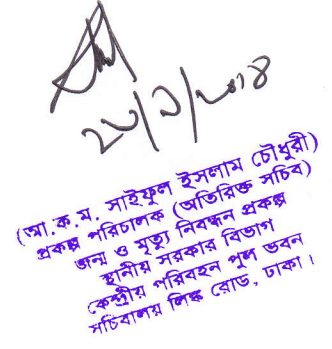 ২৮/১/২০১৪
(আ.ক.ম. সাইফুল ইসলাম চৌধুরী)
প্রকল্প পরিচালক (অতিরিক্ত সচিব)
জন্ম ও মৃত্যু নিবন্ধন প্রকল্প
স্থানীয় সরকার বিভাগ
কেন্দ্রীয় পরিবহন পুল ভবন
সচিবালয় লিঙ্ক রোড, ঢাকা।